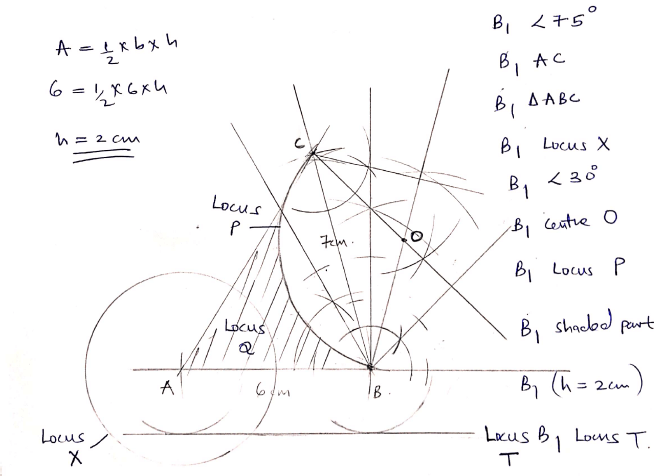 A = 1/2 x b x h
6 = 1/2 x 6 x h
h = 2 cm
B1 <75°
B1 AC
B1 ΔABC
B1 Locus X
B1 <30°
B1 centre O
B1 Locus P
B1 shaded part
B1 (h = 2cm)
B1 Locus T.
C
Locus
P
7cm.
O
Locus
Q
A
6cm
B.
Locus
X
Locus
T